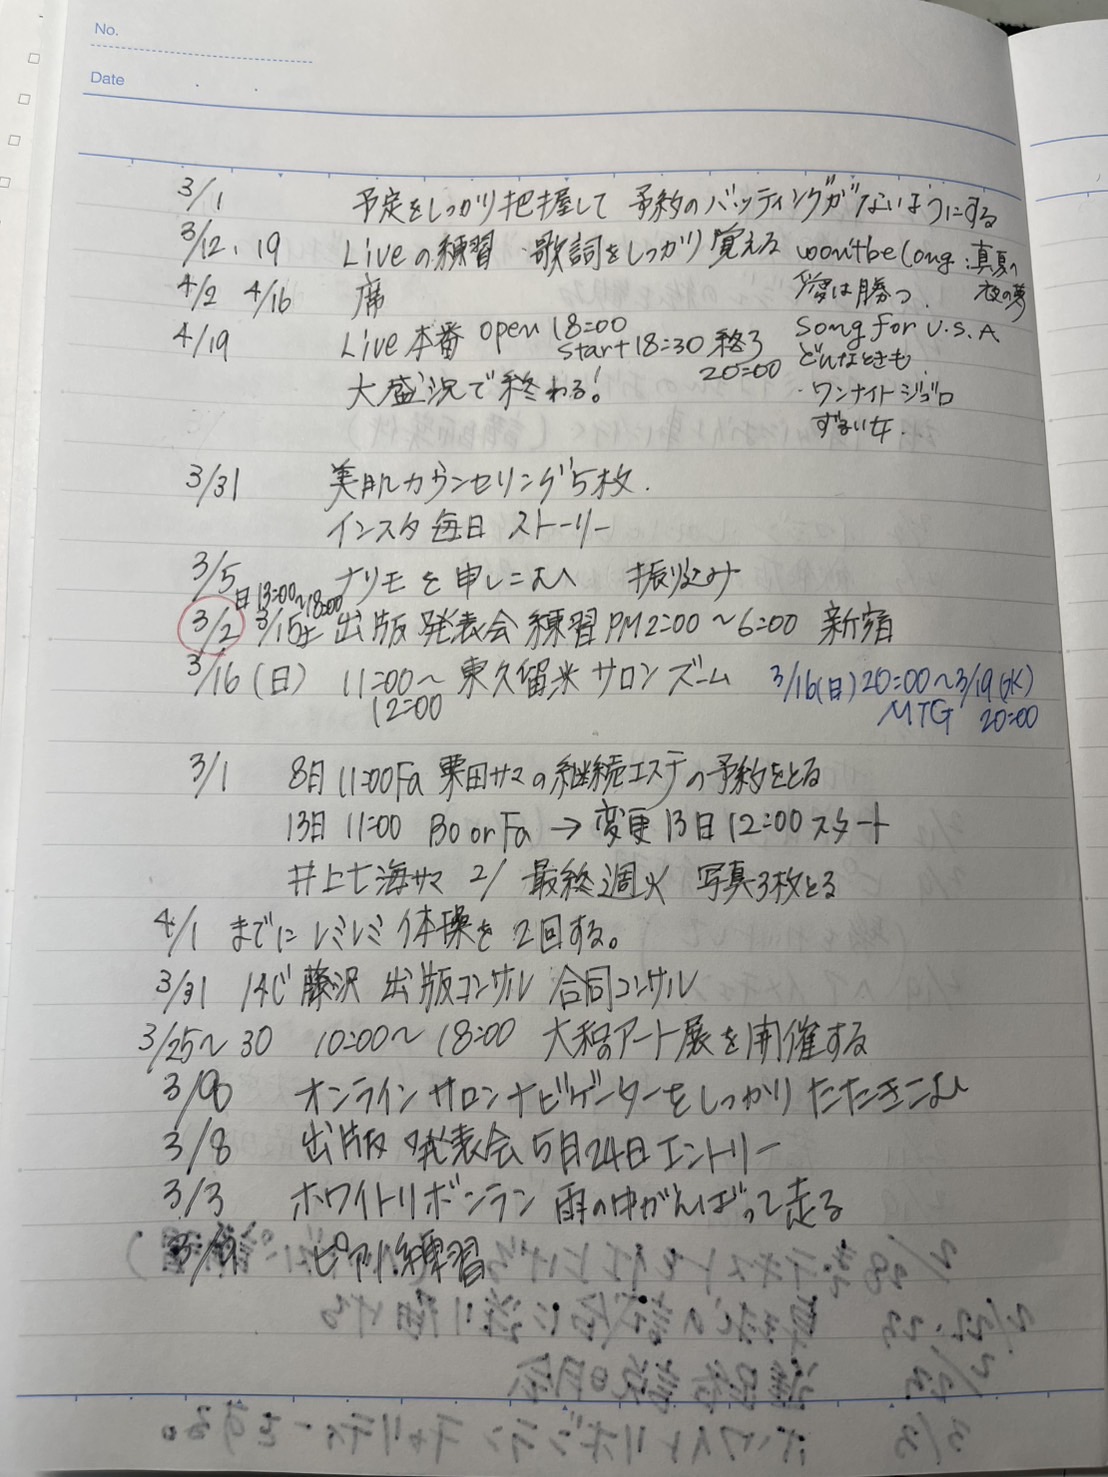 No.
Date
3/1 予定をしっかり把握して 予約のバッティングがないようにする
3/12、19 Liveの練習・歌詞をしっかり覚える won't be long・真夏の夜の夢
4/2 4/16 席 愛は勝つ.
4/19 Live本番 open 18:00 start 18:30 終了 20:00 song for U.S.A
どんなときも
大盛況で終わる! ・ワンナイトジゴロ
ずるい女.
3/31 美肌カウンセリング5枚.
インスタ毎日ストーリー
3/5 ナリモを申しこむ 振り込み
日13:00〜18:00
3/2 3/15土 出版発表会練習PM2:00〜6:00 新宿
3/16(日) 11:00〜12:00 東久留米サロンズーム 3/16(日)20:00〜3/19(水)
MTG 20:00
3/1 8日11:00Fa 栗田サマの継続エステの予約をとる
13日 11:00 Bo or Fa → 変更13日12:00スタート
井上七海サマ 2/ 最終週火 写真3枚とる
4/1 までにレミレミ体操を2回する。
3/31 14じ 藤沢 出版コンサル 合同コンサル
3/25〜30 10:00〜18:00 大和アート展を開催する
オンラインサロンナビゲーターをしっかりたたきこむ
3/8 出版発表会5月24日エントリー
3/3 ホワイトリボンラン 雨の中がんばって走る
ピアノ練習